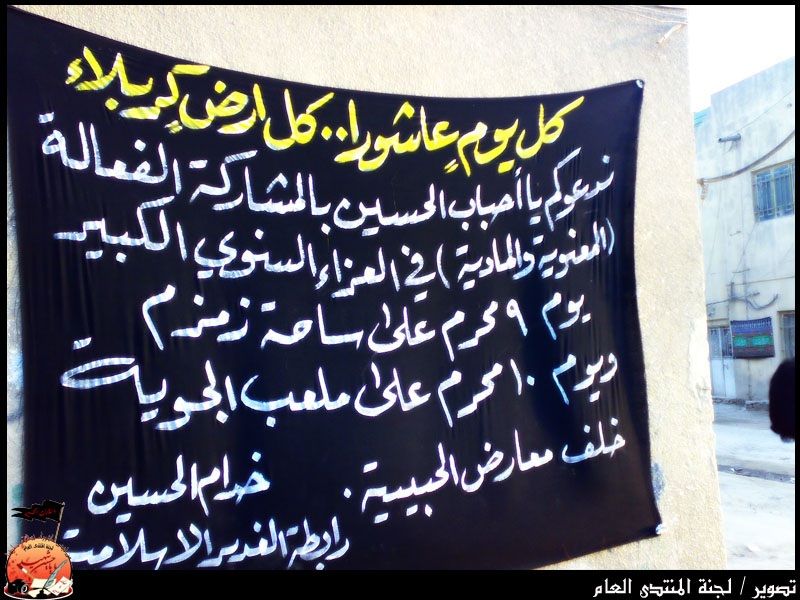 كل يوم عاشورا.. كل ارض كربلاء
ندعوكم يا أحباب الحسين بالمشاركة الفعالة
(المعنوية والمادية) في العزاء السنوي الكبير
يوم ٩ محرم على ساحة زمزم
ويوم ١٠ محرم على ملعب الجوية
خلف معارض الحبيبية.
خدام الحسين
رابطة الغدير الاسلامية
تصوير / لجنة المنتدى العام